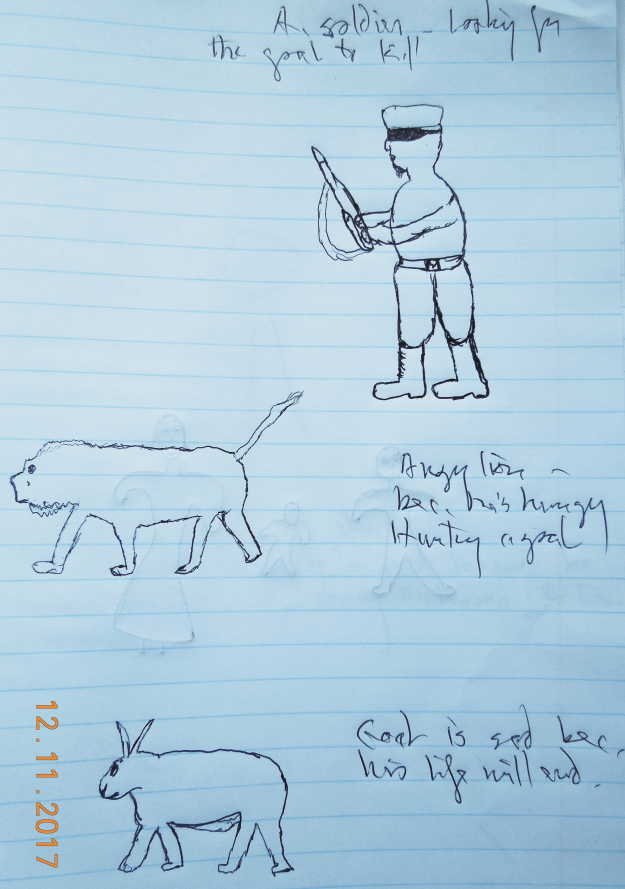 A. soldier - Looking for
the goat to kill
Angry lion -
bec. he's hungry
Hunting a goat
Goat is sad bec.
his life will end.
12.11.2017